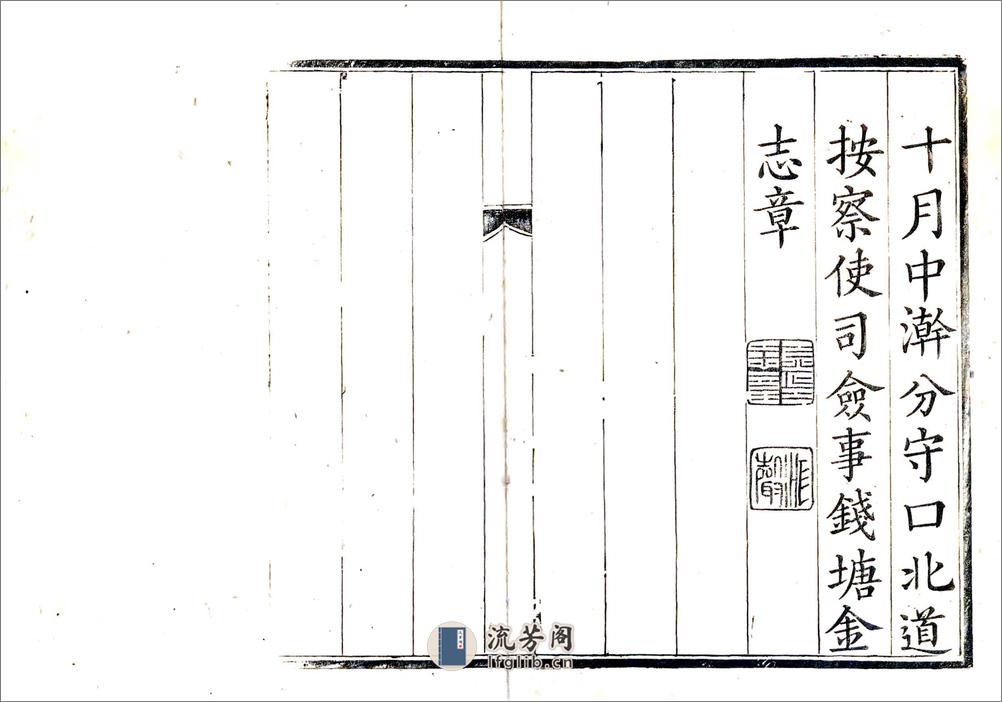 十月中澣分守口北道
按察使司僉事錢塘金
志章
流芳阁
lfglib.cn